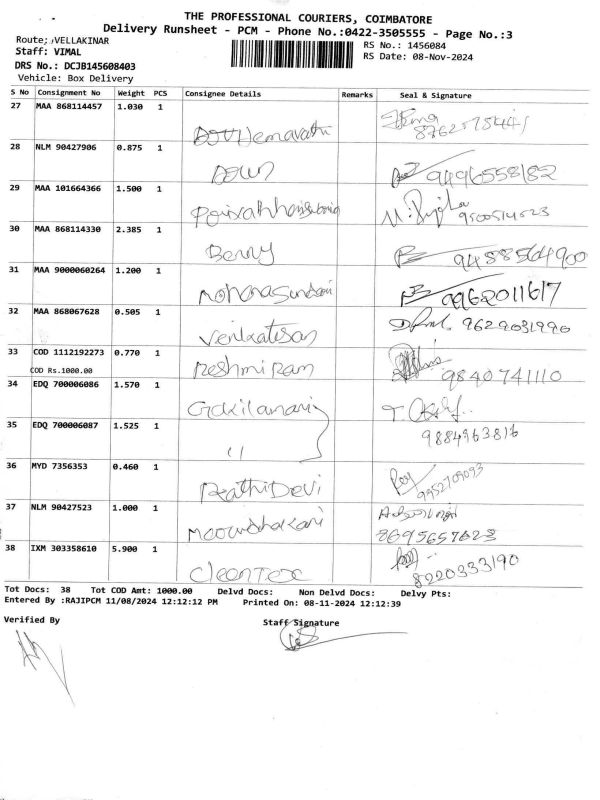 THE PROFESSIONAL COURIERS, COIMBATORE
Delivery Runsheet - PCM - Phone No.:0422-3505555 - Page No.:3
Route: VELLAKINAR
RS No.: 1456084
Staff: VIMAL
RS Date: 08-Nov-2024
DRS No.: DCJB145608403
Vehicle: Box Delivery
S No Consignment No Weight PCS Consignee Details Remarks Seal & Signature
27 MAA 868114457 1.030 1 Hemavathi
28 NLM 90427906 0.875 1 9496558182
29 MAA 101664366 1.500 1 9500514523
30 MAA 868114330 2.385 1 Benny 9488564900
31 MAA 9000060264 1.200 1 Mohanasundari 9962011617
32 MAA 868067628 0.505 1 Venkatesan 9629031990
33 COD 1112192273 0.770 1 Reshmi Ram 9840741110
COD Rs.1000.00
34 EDQ 700006086 1.570 1
35 EDQ 700006087 1.525 1 11 9884963816
36 MYD 7356353 0.460 1 Devi 9952709093
37 NLM 90427523 1.000 1
38 IXM 303358610 5.900 1 Cleantex 8220333190
Tot Docs: 38 Tot COD Amt: 1000.00 Delvd Docs: Non Delvd Docs: Delvy Pts:
Entered By :RAJIPCM 11/08/2024 12:12:12 PM Printed On: 08-11-2024 12:12:39
Verified By Staff Signature